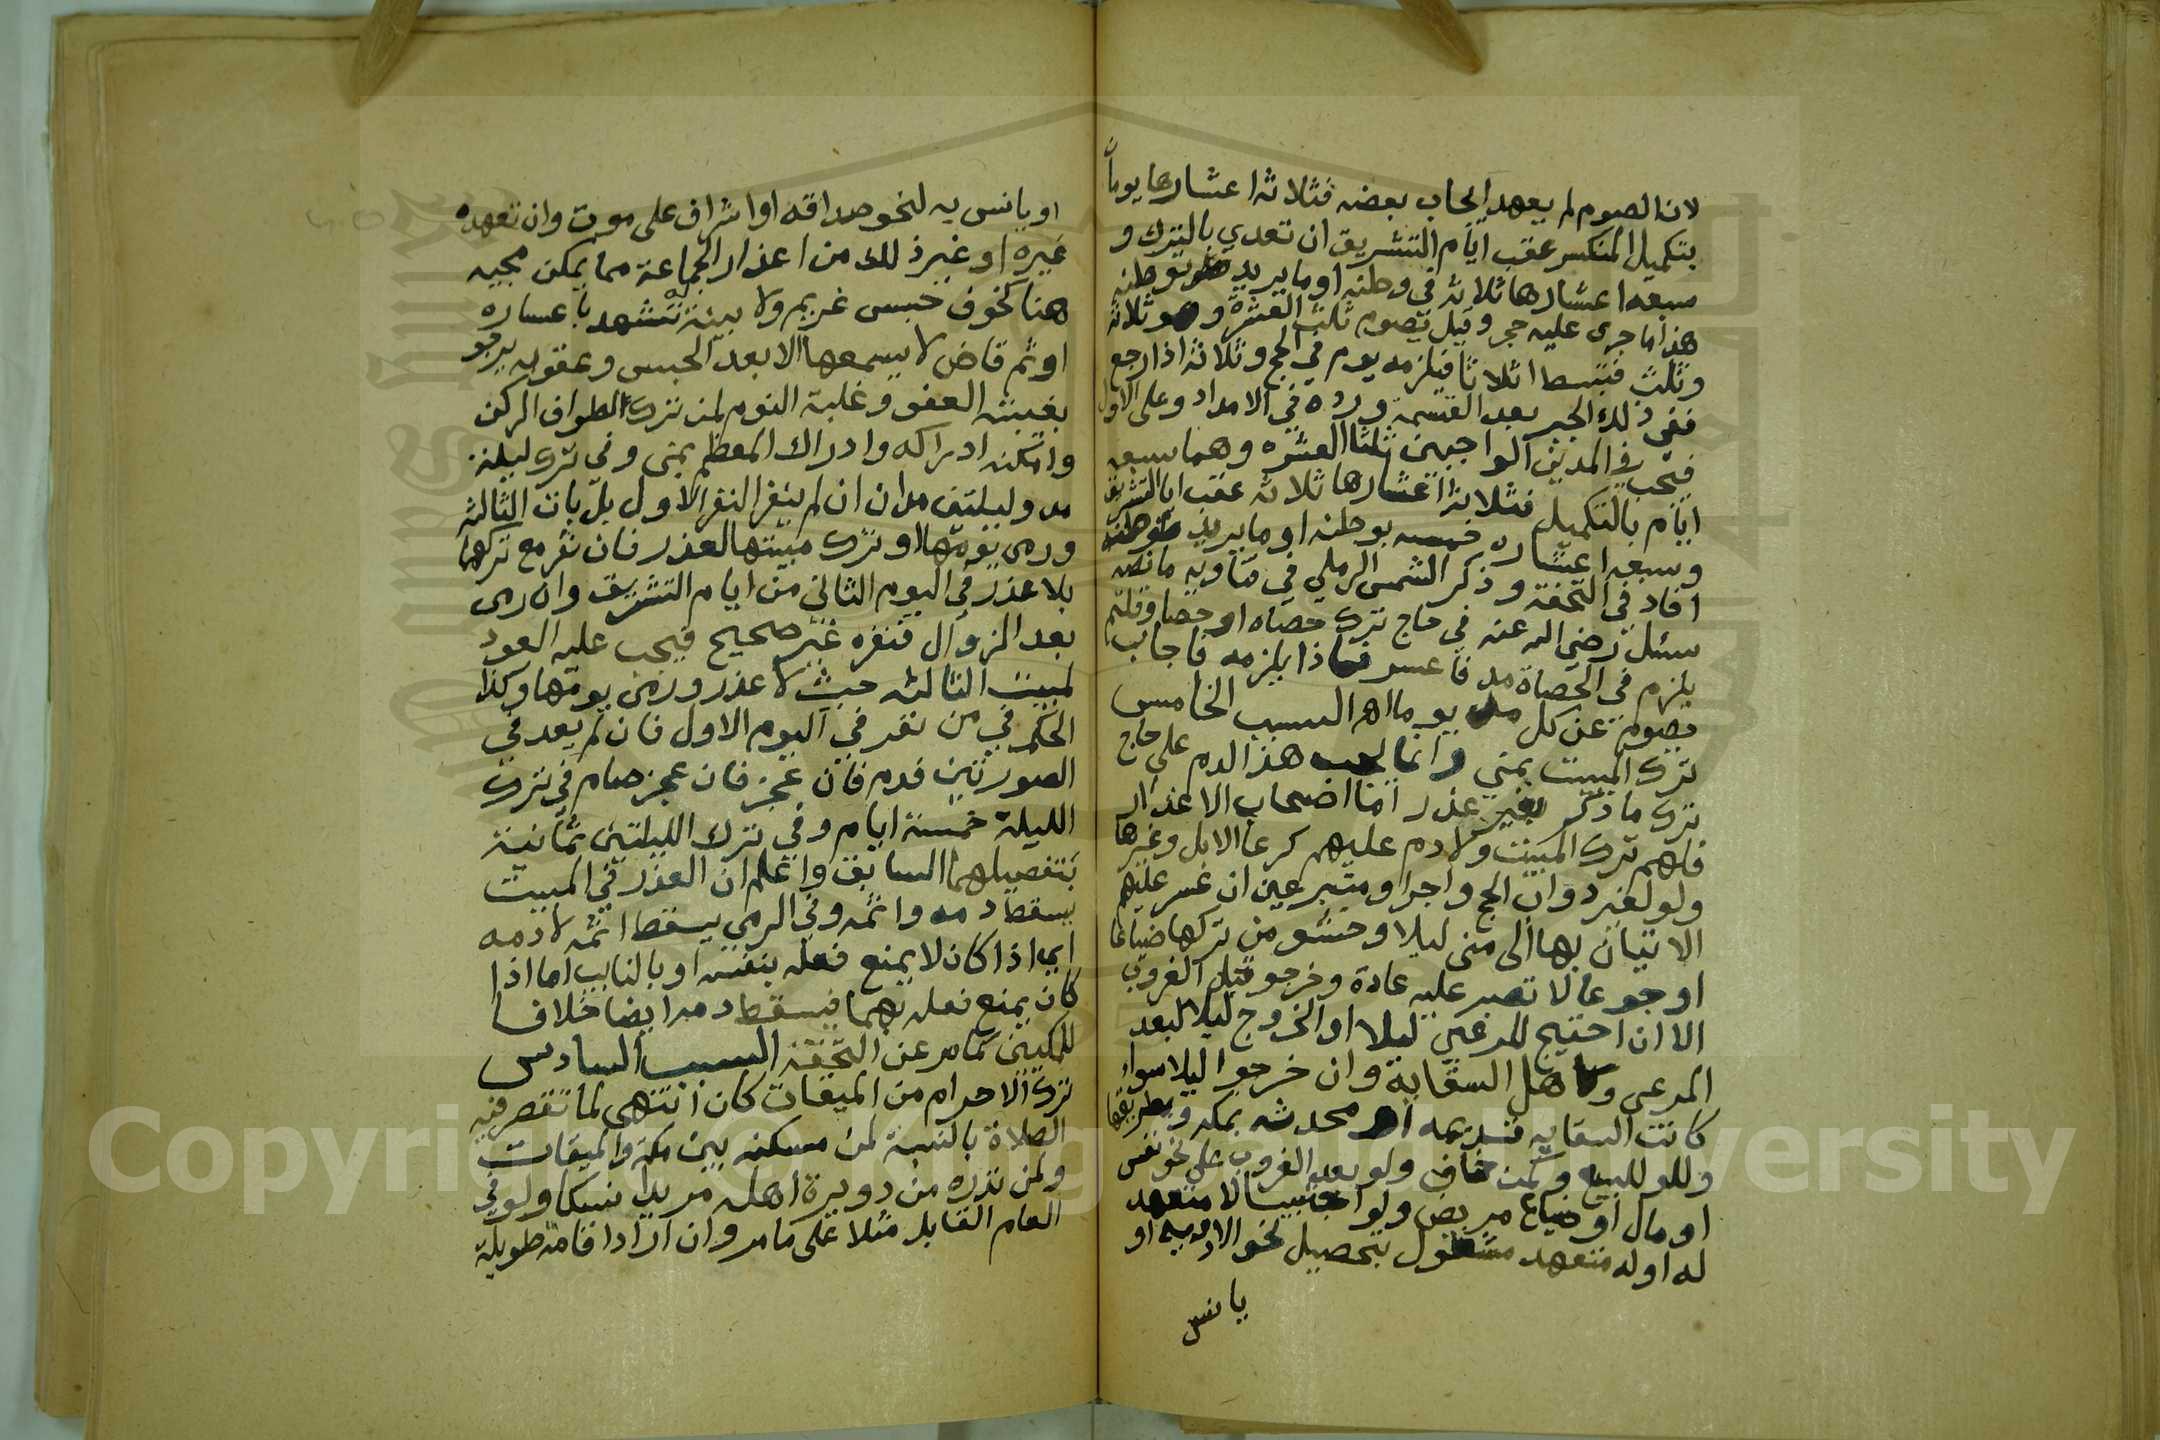 لان الصوم لم يعهد ايجاب بعضه فثلاثة اعشارها يوماً
بتكميل المنكسر عقب ايام التشريق ان تعدي بالترك و
سبعة اعشارها ثلاثة في وطنه او ما يريد توطنه
هذا ما جرى عليه حجر وقيل يصوم ثلث العشرة وهو ثلاثة
وثلث فتبسط اثلاثا فيلزمه يوم في الحج وثلاثة اذا رجع
ففي ذلك الجبر بعد القسمة ورده في الامداد وعلى الاول
فيجب في المدين الواجبين ثلثا العشرة وهما سبعة
ايام بالتكميل فثلاثة اعشارها ثلاثة عقب ايام التشريق
وسبعة اعشاره خمسة بوطنه او ما يريد توطنه
افاد في التحفة وذكر الشمس الرملي في فتاويه ما نصه
سئل رضي الله عنه في حاج ترك حصاة او حصا وقلتم
يلزم في الحصاة مد فاعسر فماذا يلزمه فاجاب
يصوم عن كل مد يوما اهـ السبب الخامس
ترك المبيت بمنى وانما يجب هذا الدم على حاج
ترك ما ذكر بغير عذر اما اصحاب الاعذار
فلهم ترك المبيت ولا دم عليهم كرعا الابل وغيرها
ولو لغير دواب الحج واجرا ومتبرعين ان عسر عليهم
الاتيان بها الى منى ليلا وخشو من تركها ضياعا
او جوعا لا تصبر عليه عادة وخرجو قبل الغروب
الا ان احتيج للرعي ليلا او الخروج ليلا لبعد
المرعى وكاهل السقاية وان خرجوا ليلا سواء
كانت السقاية قديمه او محدثه بمكه وبطريقها
وللو للبيع وكمن خاف ولو بعد الغروب على نحو نفس
او مال او ضياع مريض ولو اجنبيا لا متعهد
له او له متعهد مشغول بتحصيل نحو الادوية او
يانس
او يانس به لنحو صداقة او اشراف على موت وان تعهده
غيره او غير ذلك من اعذار الجماعة مما يمكن مجيه
هنا كخوف حبس غريم ولا بينة له تشهد باعساره
او ثم قاض لا يسمعها الا بعد الحبس وعقوبه يرجو
بغيبته العفو وغلبة النوم لمن ترك الطواف الركن
وامكنه ادراكه وادراك المعظم بمنى وفي ترك ليلة
مد وليلتين مدان ان لم ينفر النفر الاول بل بات الثالثه
ورمى يومها او ترك مبيتها لعذر فان نفر مع تركهما
بلا عذر في اليوم الثاني من ايام التشريق وان رمى
بعد الزوال فنفره غير صحيح فيجب عليه العود
لمبيت الثالثه حيث لا عذر ورمى يومها وكذا
الحكم في من نفر في اليوم الاول فان لم يعد في
الصورتين فدم فان عجز فان عجز صام في ترك
الليلة خمسة ايام وفي ترك الليلتين ثمانية
بتفصيلهما السابق واعلم ان العذر في المبيت
يسقط دمه واثمه وفي الرمي يسقط اثمه لا دمه
اي اذا كان لا يمنع فعله بنفسه او بالنايب اما اذا
كان يمنع فعله بهما فيسقط دمه ايضا خلافا
للمكيين كما مر عن التحفة السبب السادس
ترك الاحرام من الميقات كان انتهى لما تقصر فيه
الصلاة بالنسبة لمن مسكنه بين مكة والميقات
ولمن نذره من دويرة اهله مريدا نسكا ولو في
العام القابل مثلا على ما مر وان اراد اقامة طويلة